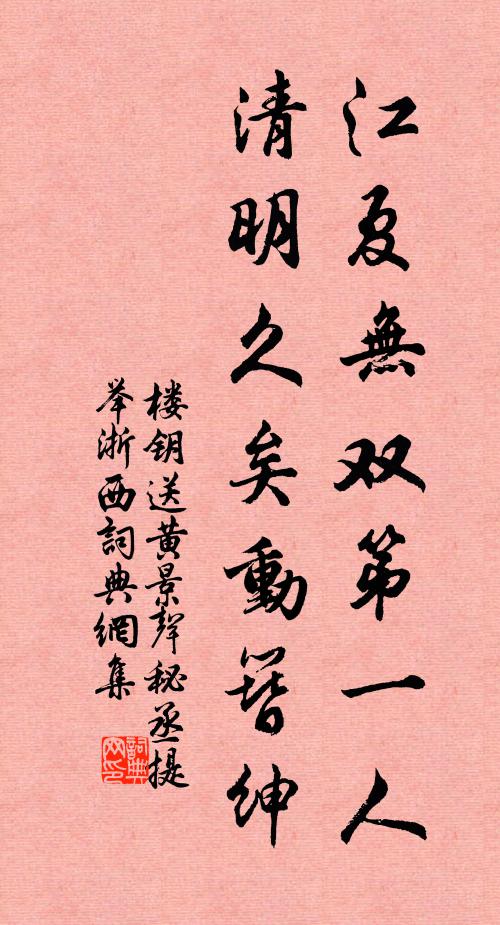 江夏無双第一人
清明久矣動簪紳
楼钥送黄景聲秘丞提
举浙西詞典網集
詞典网印